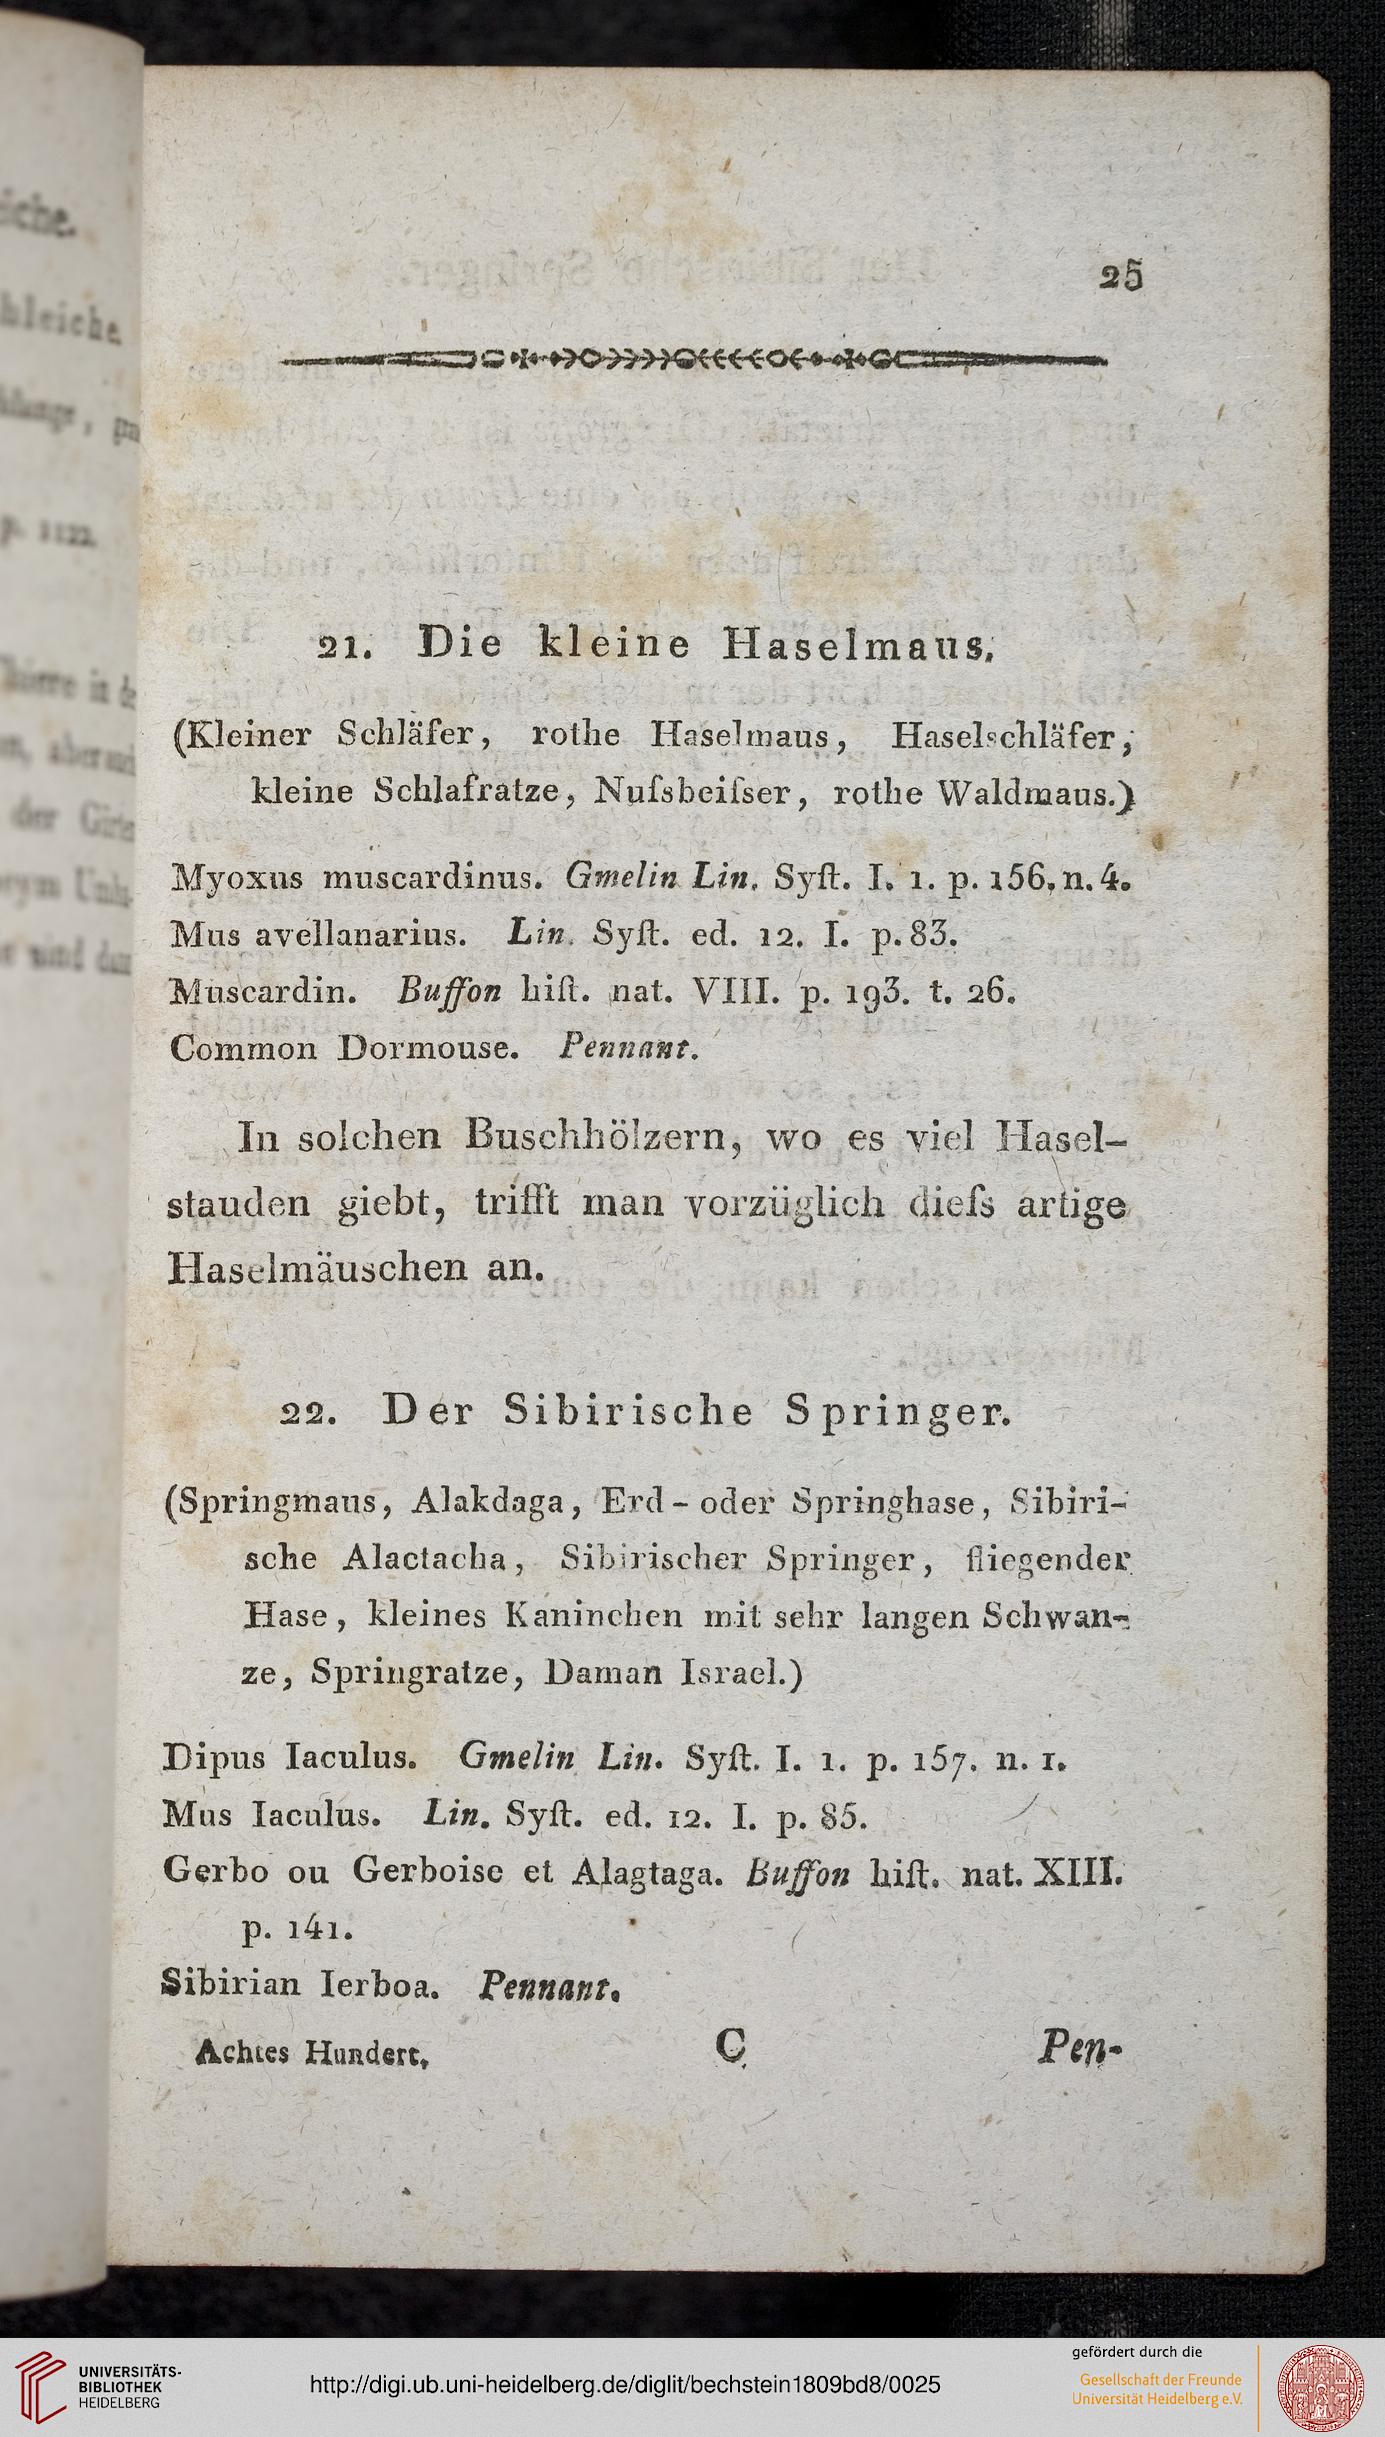 iche.
hleiche.
p. 1122.
25
21. Die kleine Haselmaus.
(Kleiner Schläfer, rothe Haselmaus, Haselschläfer,
kleine Schlafratze, Nuſsbeiſser, rothe Waldmaus.)
Myoxus muscardinus. Gmelin Lin. Syſt. I. 1. p. 156. n. 4.
Mus avellanarius. Lin. Syſt. ed. 12. I. p. 83.
Muscardin. Buffon hiſt. nat. VIII. p. 193. t. 26.
Common Dormouse. Pennant.
In solchen Buschhölzern, wo es viel Hasel-
stauden giebt, trifft man vorzüglich dieſs artige
Haselmäuschen an.
22. Der Sibirische Springer.
(Springmaus, Alakdaga, Erd- oder Springhase, Sibiri-
sche Alactacha, Sibirischer Springer, fliegender
Hase, kleines Kaninchen mit sehr langen Schwan-
ze, Springratze, Daman Israel.)
Dipus Iaculus. Gmelin Lin. Syſt. I. 1. p. 157. n. 1.
Mus Iaculus. Lin. Syſt. ed. 12. I. p. 85.
Gerbo ou Gerboise et Alagtaga. Buffon hiſt. nat. XIII.
p. 141.
Sibirian Ierboa. Pennant.
Achtes Hundert. C Pen-
UNIVERSITÄTS-
BIBLIOTHEK
HEIDELBERG
http://digi.ub.uni-heidelberg.de/diglit/bechstein1809bd8/0025
gefördert durch die
Gesellschaft der Freunde
Universität Heidelberg e.V.